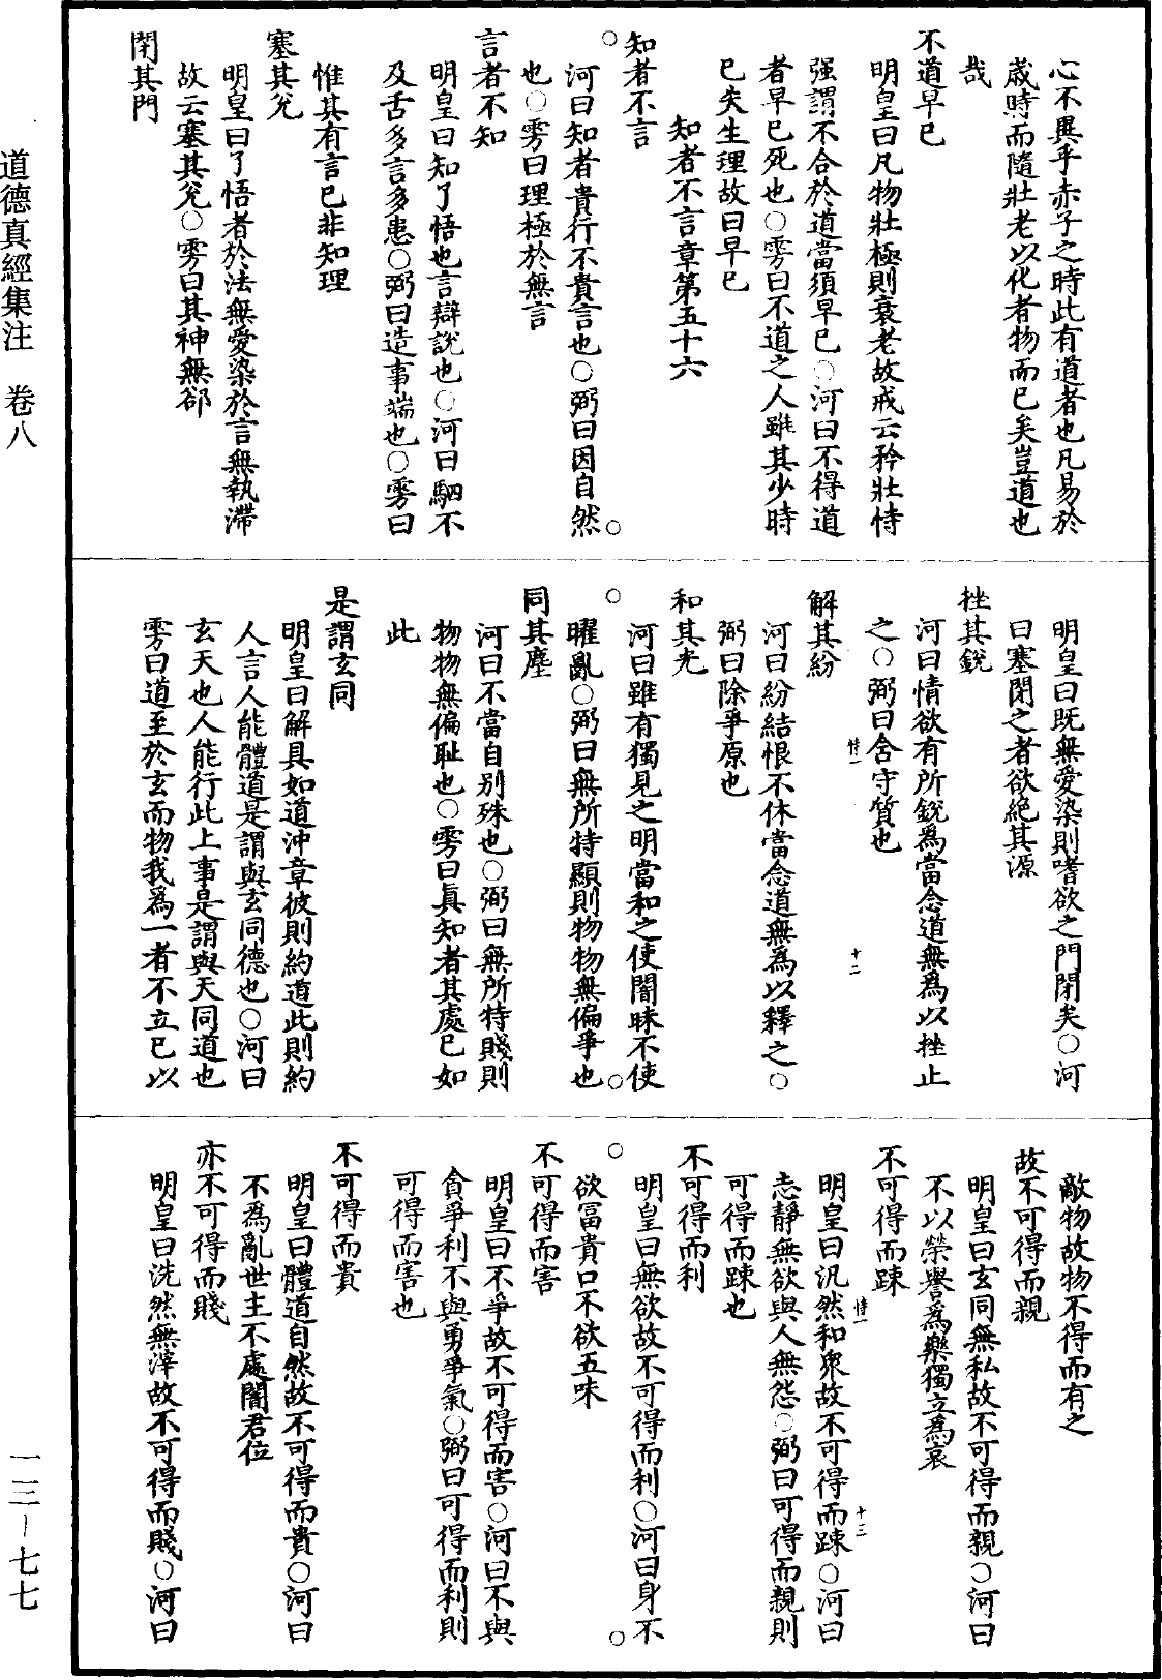 心不異乎赤子之時此有道者也凡易於
歲時而隨壯老以化者物而已矣豈道也
哉
不道早已
明皇曰凡物壯極則衰老故戒云矜壯恃
强謂不合於道當須早已○河曰不得道
者早已死也○雱曰不道之人雖其少時
已失生理故曰早已
知者不言章第五十六
知者不言
○河曰知者貴行不貴言也○弼曰因自然○
也○雱曰理極於無言
言者不知
明皇曰知了悟也言辯說也○河曰駟不
及舌多言多患○弼曰造事端也○雱曰
惟其有言已非知理
塞其兌
明皇曰了悟者於法無愛染於言無執滯
故云塞其兌○雱曰其神無郤
閉其門
明皇曰既無愛染則嗜欲之門閉矣○河
曰塞閉之者欲絕其源
挫其銳
河曰情欲有所銳爲當念道無爲以挫止
之○弼曰含守質也
恃一 十二
解其紛
河曰紛結恨不休當念道無爲以釋之○
弼曰除爭原也
和其光
河曰雖有獨見之明當和之使闇昧不使
○曜亂○弼曰無所特顯則物物無偏爭也○
同其塵
河曰不當自別殊也○弼曰無所特賤則
物物無偏耻也○雱曰眞知者其處已如
此
是謂玄同
明皇曰解具如道沖章彼則約道此則約
人言人能體道是謂與玄同德也○河曰
玄天也人能行此上事是謂與天同道也
雱曰道至於玄而物我爲一者不立已以
敵物故物不得而有之
故不可得而親
明皇曰玄同無私故不可得而親○河曰
不以榮譽爲樂獨立爲哀
不可得而踈
恃一 十三
明皇曰汎然和衆故不可得而踈○河曰
志靜無欲與人無怨○弼曰可得而親則
可得而踈也
不可得而利
明皇曰無欲故不可得而利○河曰身不
○欲富貴口不欲五味○
不可得而害
明皇曰不爭故不可得而害○河曰不與
貪爭利不與勇爭氣○弼曰可得而利則
可得而害也
不可得而貴
明皇曰體道自然故不可得而貴○河曰
不爲亂世主不處闇君位
亦不可得而賤
明皇曰洗然無滓故不可得而賤○河曰
道德真經集注 卷八
一三—七七